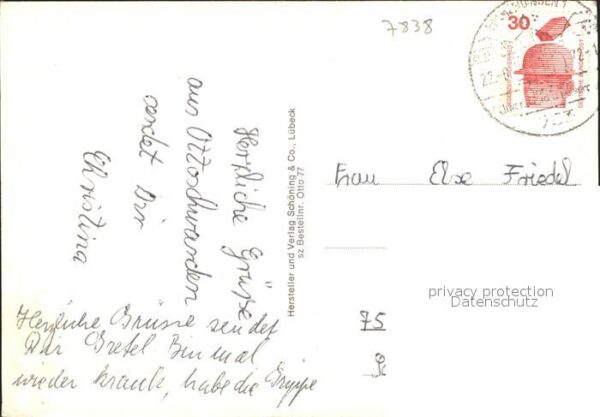 7838
30
Herzliche Grüße
aus Ottoschwanden
sendet Dir
Christina
Herzliche Grüsse sendet
Dir Gretel Bin mal
wieder krank, habe die Grippe
Hersteller und Verlag Schöning & Co., Lübeck
sz Bestellnr. Otto 77
Frau Else Friedel
privacy protection
Datenschutz
75